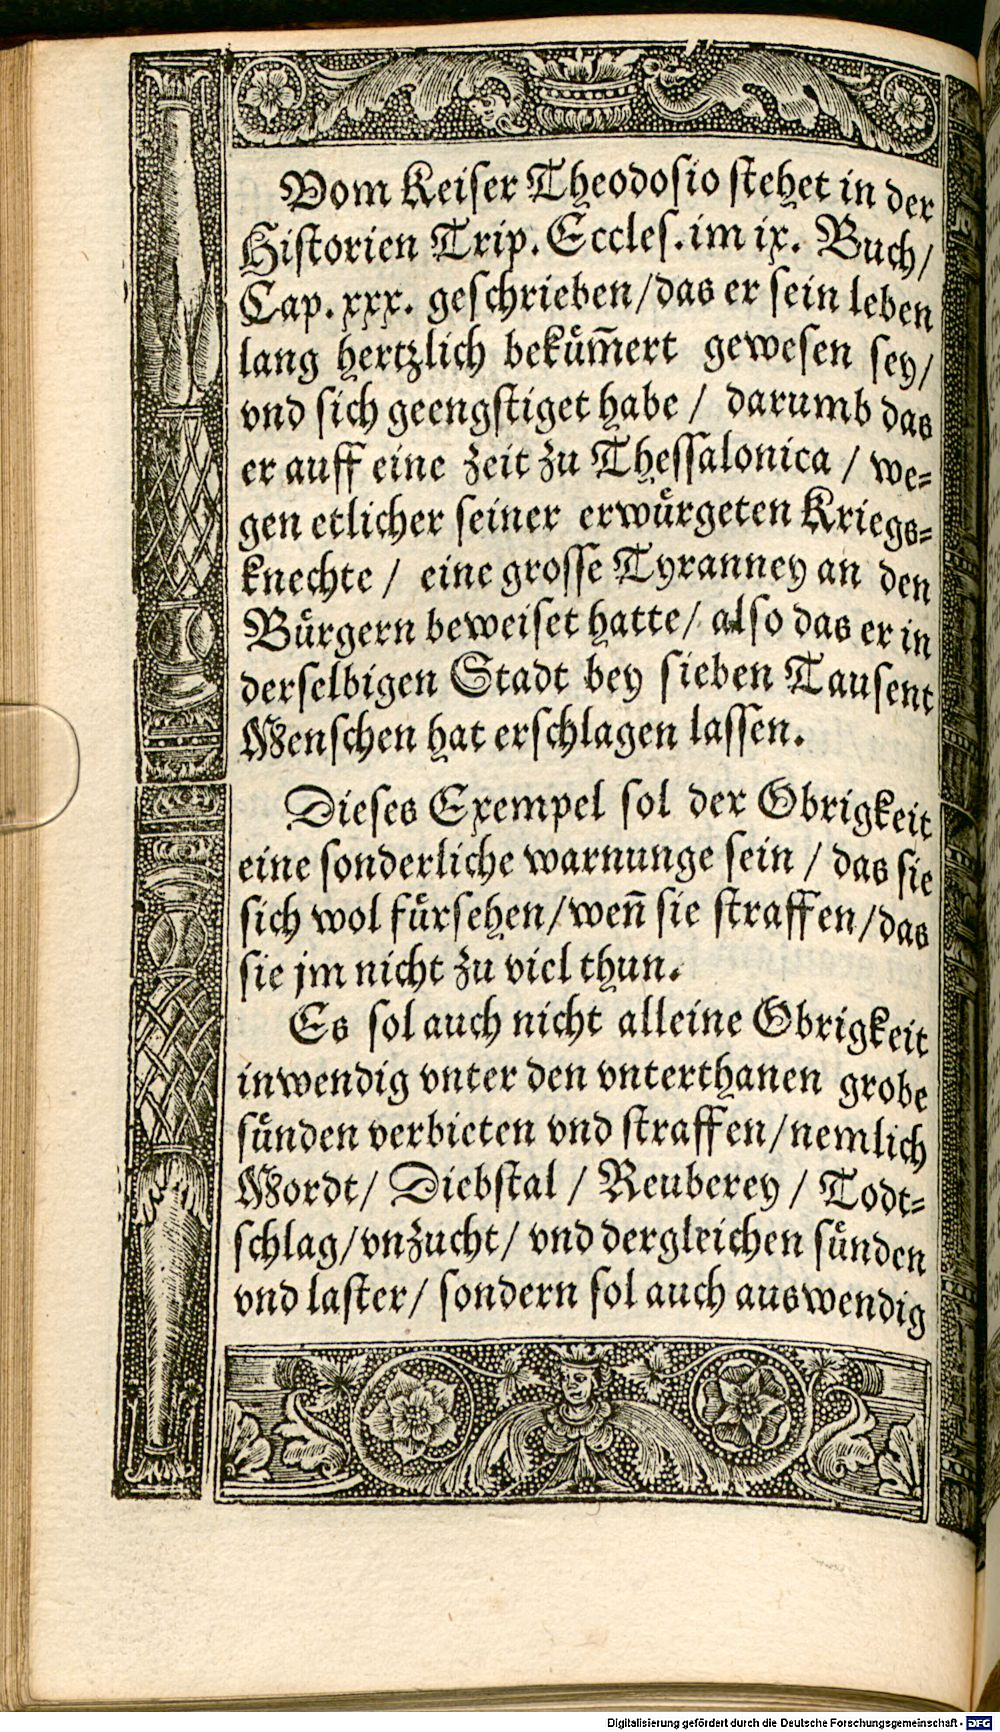 Vom Keiser Theodosio stehet in der
Historien Trip. Eccles. im ix. Buch/
Cap. xxx. geschrieben/das er sein leben
lang hertzlich bekům̄ert gewesen sey/
vnd sich geengstiget habe / darumb das
er auff eine zeit zu Thessalonica / we⸗
gen etlicher seiner erwůrgeten Kriegs⸗
knechte / eine grosse Tyranney an den
Bůrgern beweiset hatte/ also das er in
derselbigen Stadt bey sieben Tausent
Menschen hat erschlagen lassen.
Dieses Exempel sol der Obrigkeit
eine sonderliche warnunge sein / das sie
sich wol fůrsehen/wen̄ sie straffen/das
sie jm nicht zu viel thun.
Es sol auch nicht alleine Obrigkeit
inwendig vnter den vnterthanen grobe
sůnden verbieten vnd straffen/nemlich
Mordt/ Diebstal / Reuberey / Todt⸗
schlag/vnzucht/ vnd dergleichen sůnden
vnd laster/ sondern sol auch auswendig
Digitalisierung gefördert durch die Deutsche Forschungsgemeinschaft - DFG